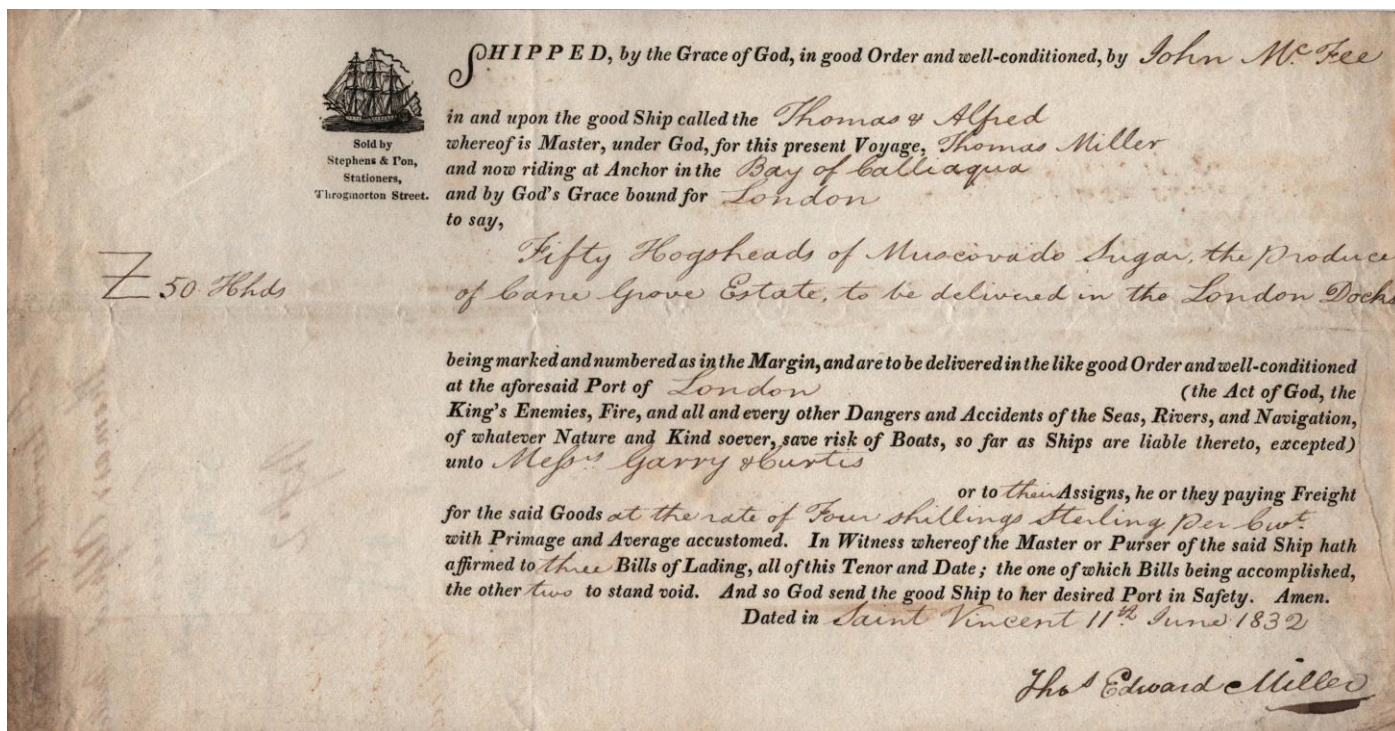 SHIPPED, by the Grace of God, in good Order and well-conditioned, by John McFee
Sold by
Stephens & Son,
Stationers,
Throgmorton Street.
in and upon the good Ship called the Thomas & Alfred
whereof is Master, under God, for this present Voyage, Thomas Miller
and now riding at Anchor in the Bay of Calliaqua
and by God's Grace bound for London
to say,
Fifty Hogsheads of Muscovado Sugar, the produce
50 Hhds
of Cane Grove Estate, to be delivered in the London Docks
being marked and numbered as in the Margin, and are to be delivered in the like good Order and well-conditioned
at the aforesaid Port of London (the Act of God, the
King's Enemies, Fire, and all and every other Dangers and Accidents of the Seas, Rivers, and Navigation,
of whatever Nature and Kind soever, save risk of Boats, so far as Ships are liable thereto, excepted)
unto Messrs Garry & Curtis
or to their Assigns, he or they paying Freight
for the said Goods at the rate of Four shillings sterling per Cwt.
with Primage and Average accustomed. In Witness whereof the Master or Purser of the said Ship hath
affirmed to three Bills of Lading, all of this Tenor and Date; the one of which Bills being accomplished,
the other two to stand void. And so God send the good Ship to her desired Port in Safety. Amen.
Dated in Saint Vincent 11th June 1832
Thos Edward Miller